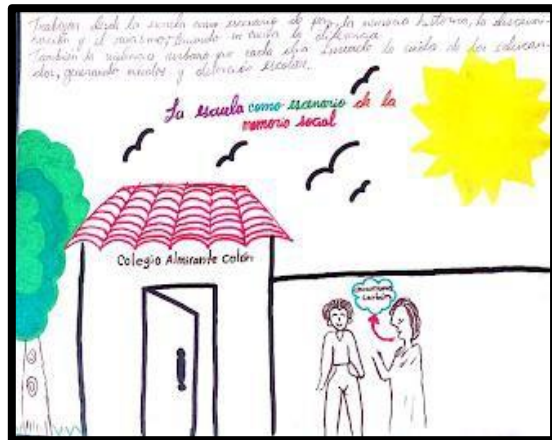 Trabajar desde la escuela como escenario de paz, la memoria historica, la discriminación y el racismo, teniendo en cuenta la diferencia.
También la violencia urbana que cada día la vida de los educandos, generando miedos y deserción escolar.
La escuela como escenario de la
memoria social
Colegio Almirante Colón